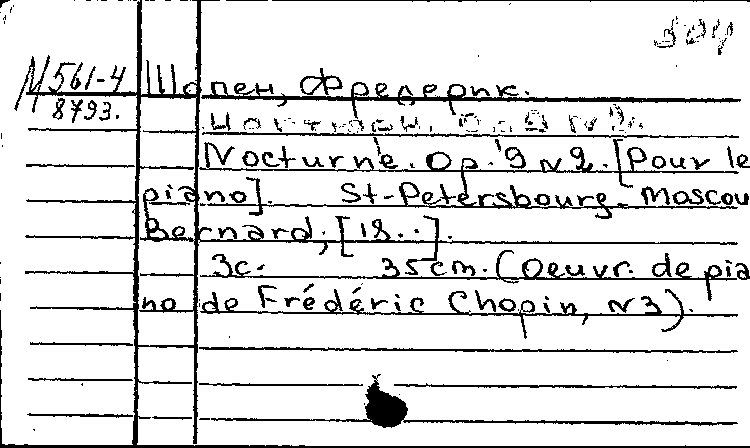 304
М 561-4
8793.
Шопен, Фредерик.
Ноктюрн. Op. 9 N 2.
Nocturne. Op. 9 N 2. [Pour le
piano]. St-Petersbourg - Moscou
Bernard, [18..].
3с. 35 cm. (Oeuvr. de pia
no de Frédéric Chopin, N 3).